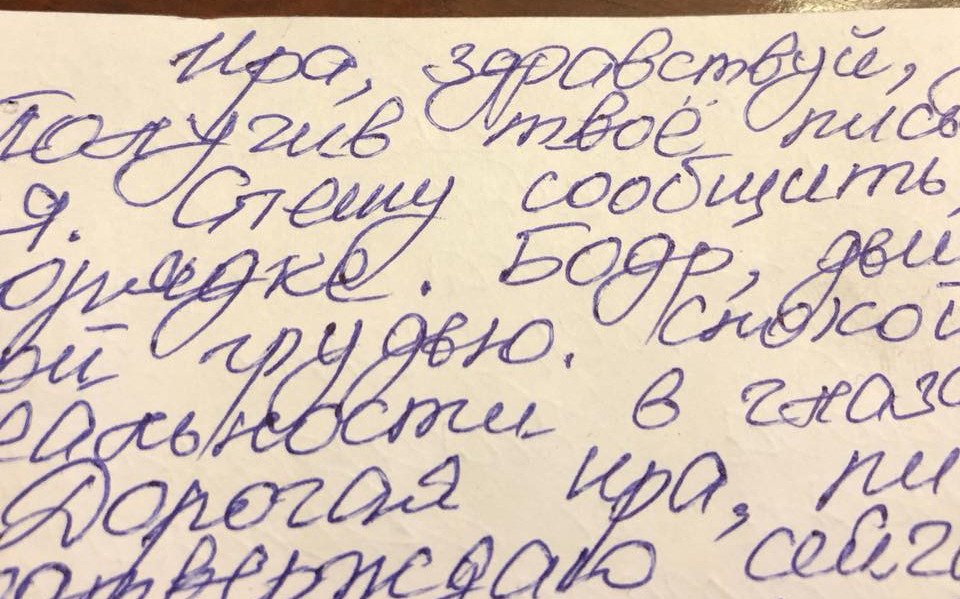 Ира, здравствуй,
Получив твоё пись
я. Спешу сообщить,
орядке. Бодр, ды
ой грудью. Спокой
еальности в глаза
Дорогая Ира, пи
дтверждаю сейчас